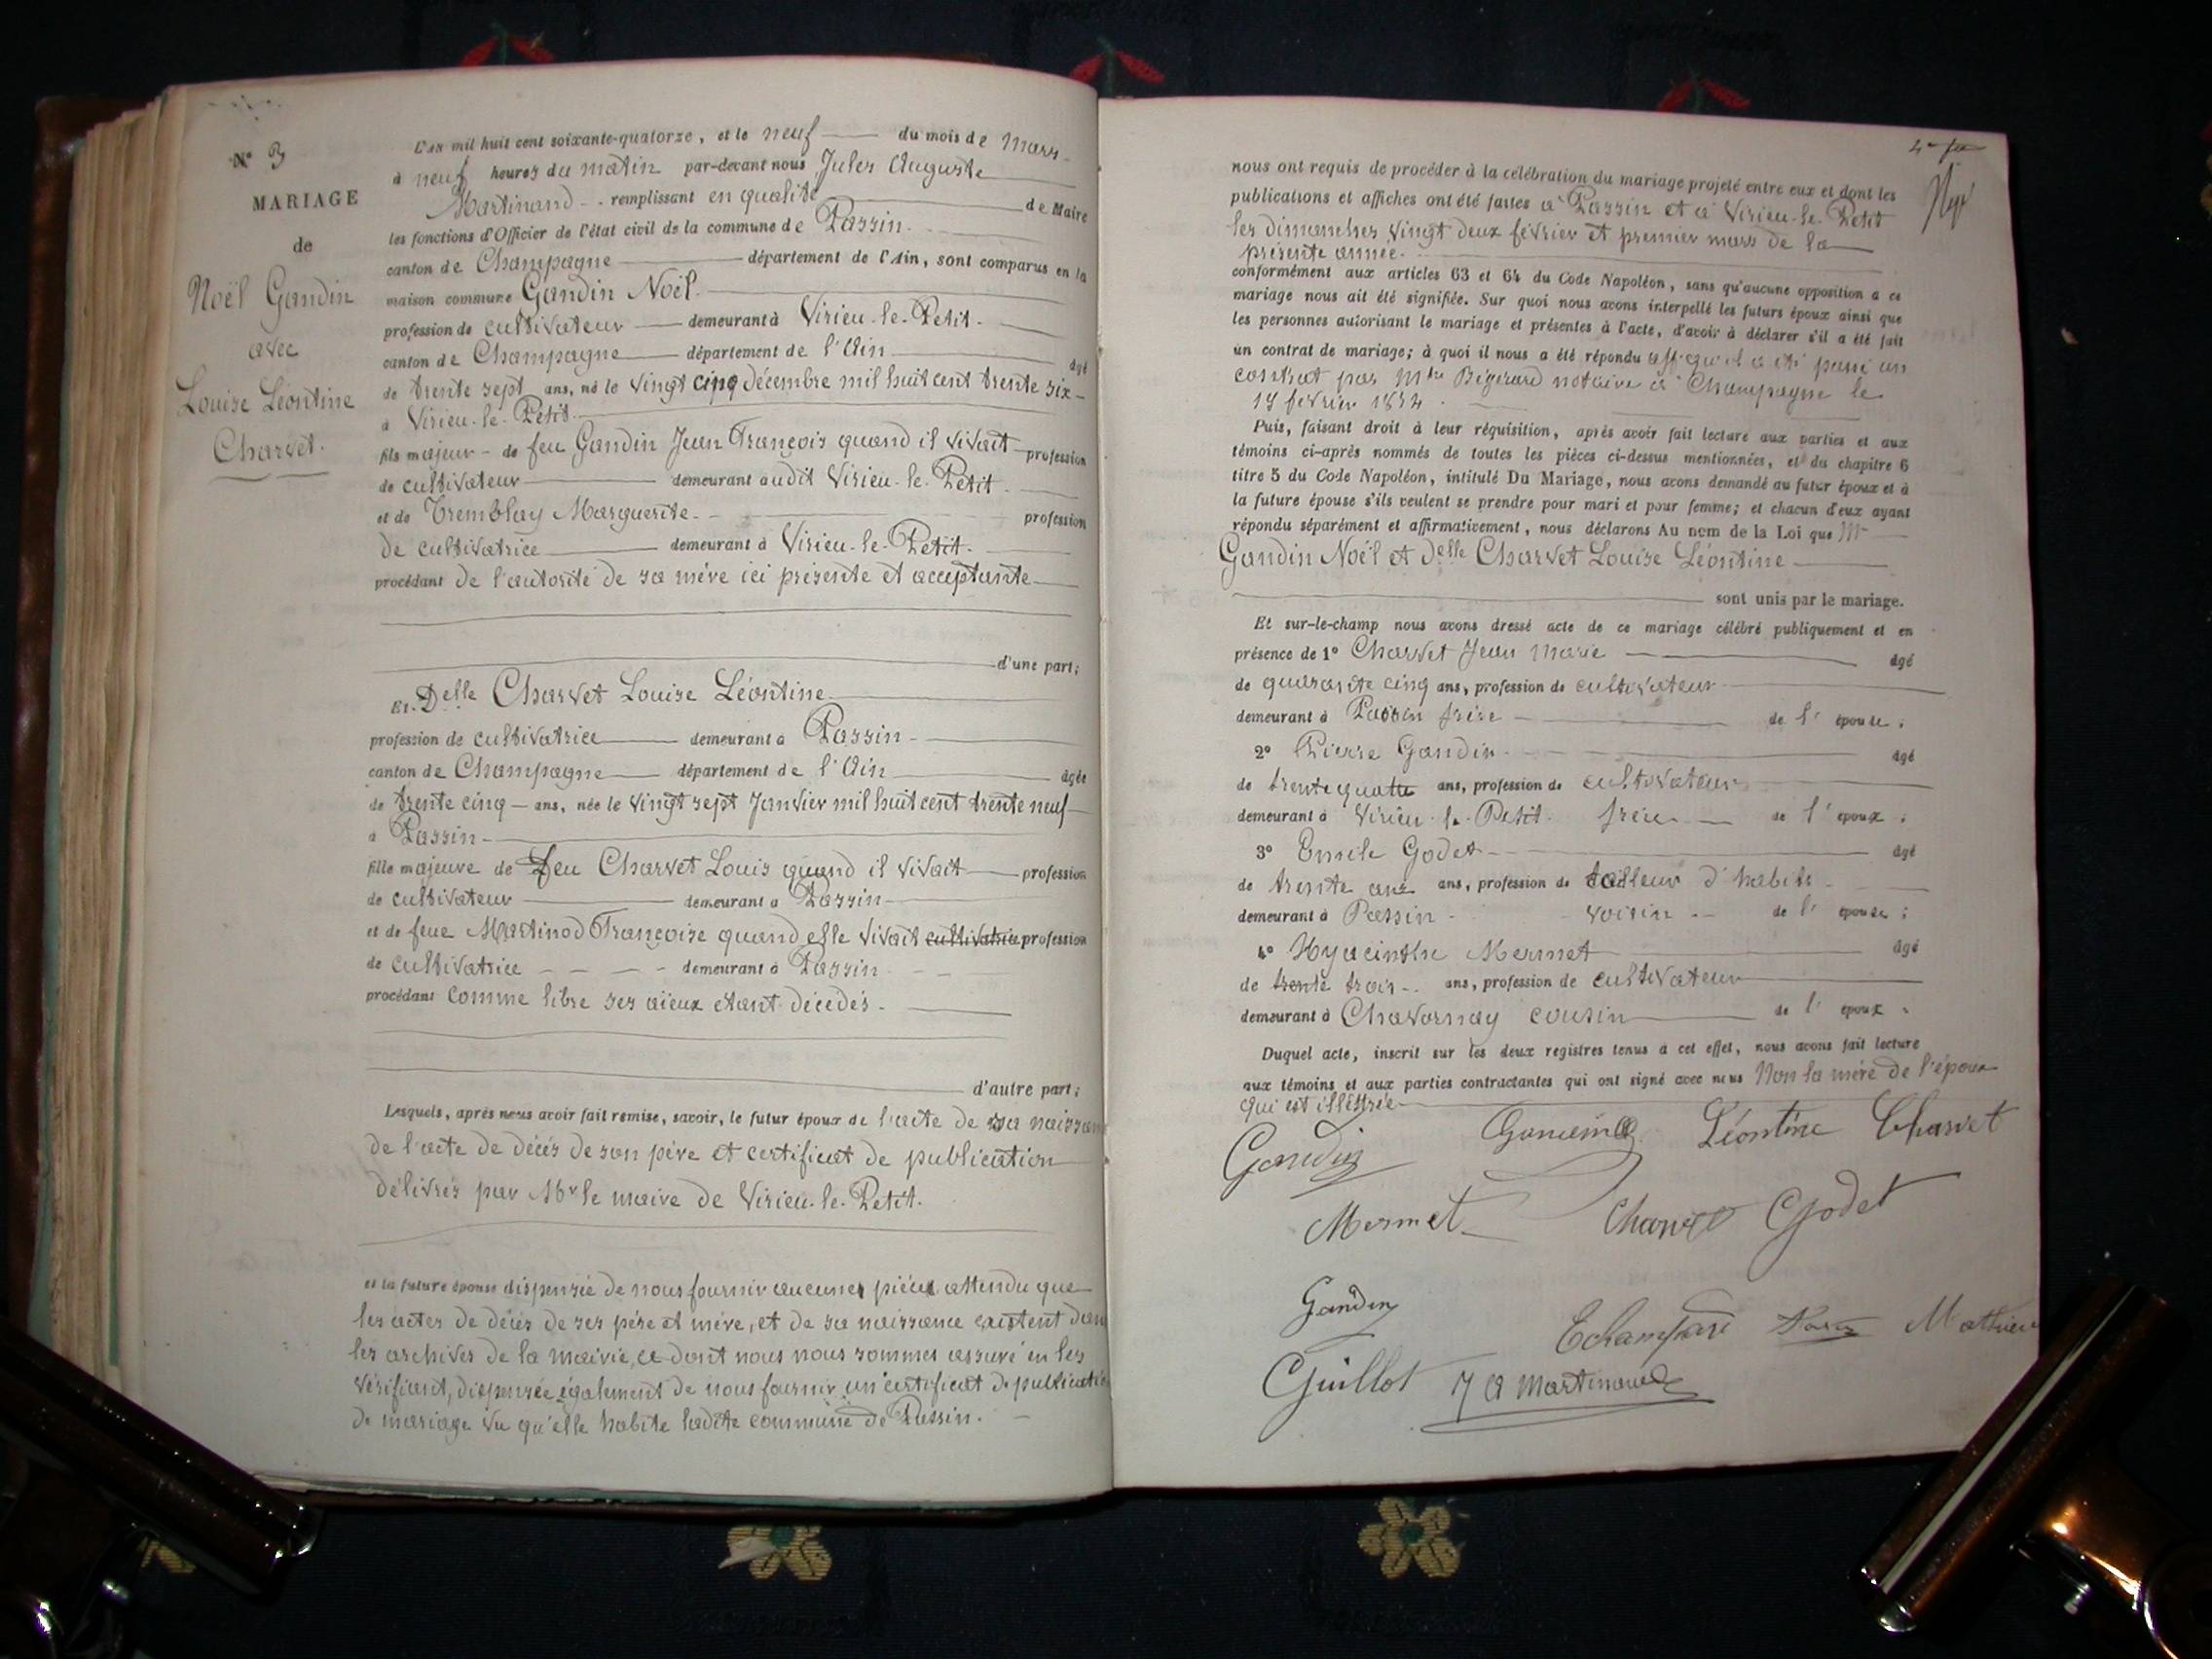 N° 3
MARIAGE
de
Noël Gandin
avec
Louise Léontine
Charvet.
L'an mil huit cent soixante-quatorze, et le neuf du mois de Mars
à neuf heures du matin par-devant nous Jules Auguste
Martinand remplissant en qualité de Maire
les fonctions d'Officier de l'état civil de la commune de Passin.
canton de Champagne département de l'Ain, sont comparus en la
maison commune Gandin Noël
profession de cultivateur demeurant à Virieu-le-Petit.
canton de Champagne département de l'Ain âgé
de trente sept ans, né le vingt cinq décembre mil huit cent trente six
à Virieu-le-Petit
fils majeur de feu Gandin Jean François quand il vivait profession
de cultivateur demeurant audit Virieu-le-Petit.
et de Tremblay Marguerite profession
de cultivatrice demeurant à Virieu-le-Petit.
procédant de l'autorité de sa mère ici présente et acceptante
d'une part;
Et Delle Charvet Louise Léontine
profession de cultivatrice demeurant à Passin
canton de Champagne département de l'Ain âgée
de trente cinq ans, née le vingt sept Janvier mil huit cent trente neuf
à Passin
fille majeure de Feu Charvet Louis quand il vivait profession
de cultivateur demeurant à Passin
et de feue Martinod Françoise quand elle vivait cultivatrice profession
de cultivatrice demeurant à Passin
procédant comme libre ses aïeux étant décédés.
d'autre part;
Lesquels, après nous avoir fait remise, savoir, le futur époux de l'acte de sa naissan
de l'acte de décès de son père et certificat de publication
délivrés par Mr le maire de Virieu-le-Petit.
et la future épouse dispensée de nous fournir aucunes pièces attendu que
les actes de décès de ses père et mère, et de sa naissance existent dan
les archives de la mairie, ce dont nous nous sommes assuré en les
vérifiant, dispensée également de nous fournir un certificat de publicati
de mariage vu qu'elle habite ladite commune de Passin.
nous ont requis de procéder à la célébration du mariage projeté entre eux et dont les
publications et affiches ont été faites à Passin et à Virieu-le-Petit
les dimanches vingt deux février et premier mars de la
présente année.
conformément aux articles 63 et 64 du Code Napoléon, sans qu'aucune opposition à ce
mariage nous ait été signifiée. Sur quoi nous avons interpellé les futurs époux ainsi que
les personnes autorisant le mariage et présentes à l'acte, d'avoir à déclarer s'il a été fait
un contrat de mariage; à quoi il nous a été répondu qu'il a été passé un
contrat par notaire à Champagne le
février
Puis, faisant droit à leur réquisition, après avoir fait lecture aux parties et aux
témoins ci-après nommés de toutes les pièces ci-dessus mentionnées, et du chapitre 6
titre 5 du Code Napoléon, intitulé Du Mariage, nous avons demandé au futur époux et à
la future épouse s'ils veulent se prendre pour mari et pour femme; et chacun d'eux ayant
répondu séparément et affirmativement, nous déclarons Au nom de la Loi que Mr
Gandin Noël et Delle Charvet Louise Léontine
sont unis par le mariage.
Et sur-le-champ nous avons dressé acte de ce mariage célébré publiquement et en
présence de 1° Charvet Jean Marie âgé
de quarante cinq ans, profession de cultivateur
demeurant à Passin frère de l'épouse;
2° Pierre Gandin âgé
de trente quatre ans, profession de cultivateur
demeurant à Virieu-le-Petit. frère de l'époux;
3° Emile Godet âgé
de trente ans, profession de tailleur d'habits
demeurant à Passin voisin de l'épouse;
4° Hyacinthe Mermet âgé
de trente trois ans, profession de cultivateur
demeurant à Chavornay cousin de l'époux.
Duquel acte, inscrit sur les deux registres tenus à cet effet, nous avons fait lecture
aux témoins et aux parties contractantes qui ont signé avec nous Non la mère de l'époux
qui est illettrée
Gandin Léontine Charvet
Mermet Charvet Godet
Gandin
Mathieu
Guillot J A Martinand